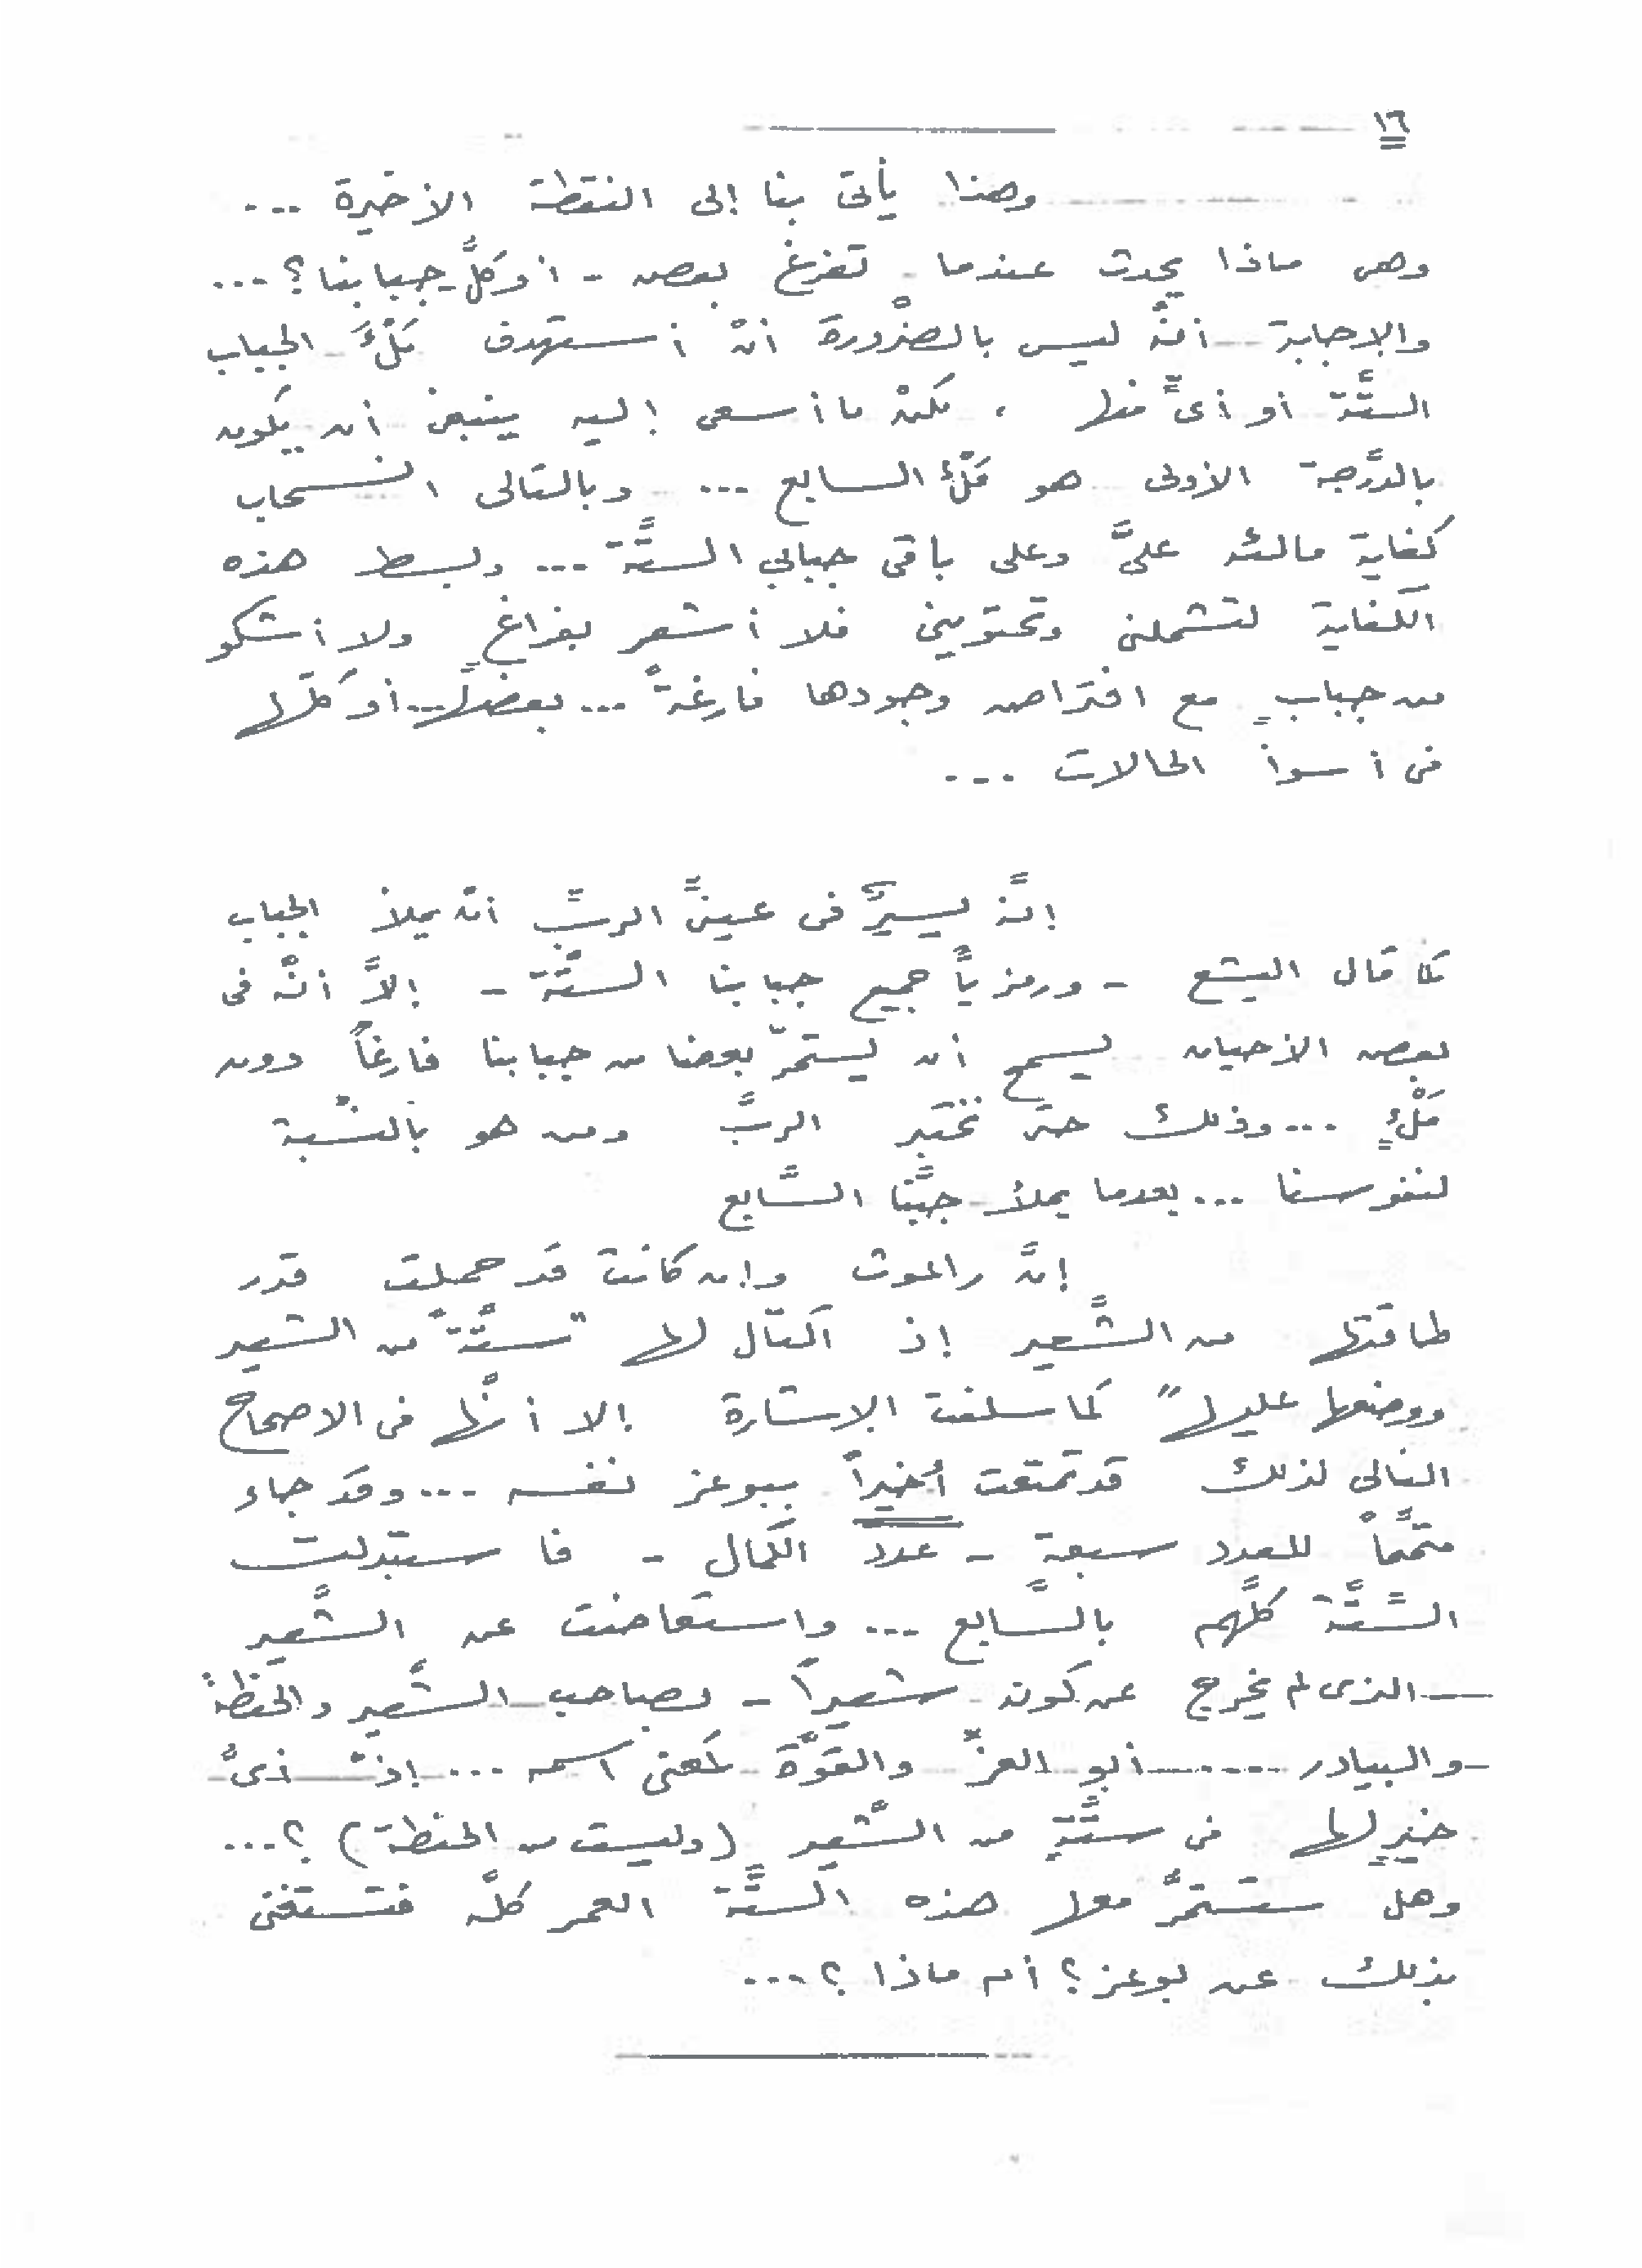 ١٦
وهذا يأتى بنا إلى النقطة الأخيرة ...
وهى ماذا يحدث عندما تفرغ بعض - أو كلّ جبابنا؟ ...
والإجابة أنَّه ليس بالضرورة أنْ أستهدف مَلْءَ الجباب
الستَّة أو أىٍّ منها ، لكنْ ما أسعى إليه ينبغى أن يكون
بالدَّرجة الأولى هو مَلْءُ السابع ... وبالتالى انسحاب
كفاية مالئه علىَّ وعلى باقى جبابى الستَّة ... وبسط هذه
الكفاية لتشملنى وتحتوينى فلا أشعر بفراغٍ ولا أشكو
من جبابٍ مع افتراض وجودها فارغةً ... بعضها ... أو كلّها
فى أسوأ الحالات ...
إنَّه ليسيرٌ فى عينىَّ الربِّ أنْ يملأ الجباب
كما قال اليشع - ورمزياً جميع جبابنا الستَّة - إلاَّ أنَّه فى
بعض الأحيان يسمح أن يستمرّ بعضنا من جبابنا فارغاً دون
مَلْءٍ ... وذلك حتى نختبر الربَّ ومن هو بالنسْبة
لنفوسنا ... بعدما يملأ جبَّنا السَّابع
إنَّ راعوث وإن كانت قد حملت قدر
طاقتها من الشَّعير إذ اكتال لها "ستَّةً من الشعير
ووضعها عليها" كما سلفت الإشارة إلا أنَّها فى الاصحاح
التالى لذلك قد تمتعت أخيراً ببوعز نفسه ... وقد جاء
متمَّماً للعدد سبعة - عدد الكمال - فاستبدلت
السَّتَّة كلَّهم بالسَّابع ... واستعاضت عن الشَّعير
الذى لم يخرج عن كونه شعيراً - بصاحب الشَّعير والحنطة
والبيادر ..... أبو العزّ والقوَّة كمعنى اسمه ... إذْ أىُّ
خيرٍ لها فى ستَّةٍ من الشَّعير (وليست من الحنطة) ؟ ...
وهل ستستمرُّ معها هذه الستَّة العمر كلَّه فتستغنى
بذلك عن بوعز؟ أم ماذا ؟ ...